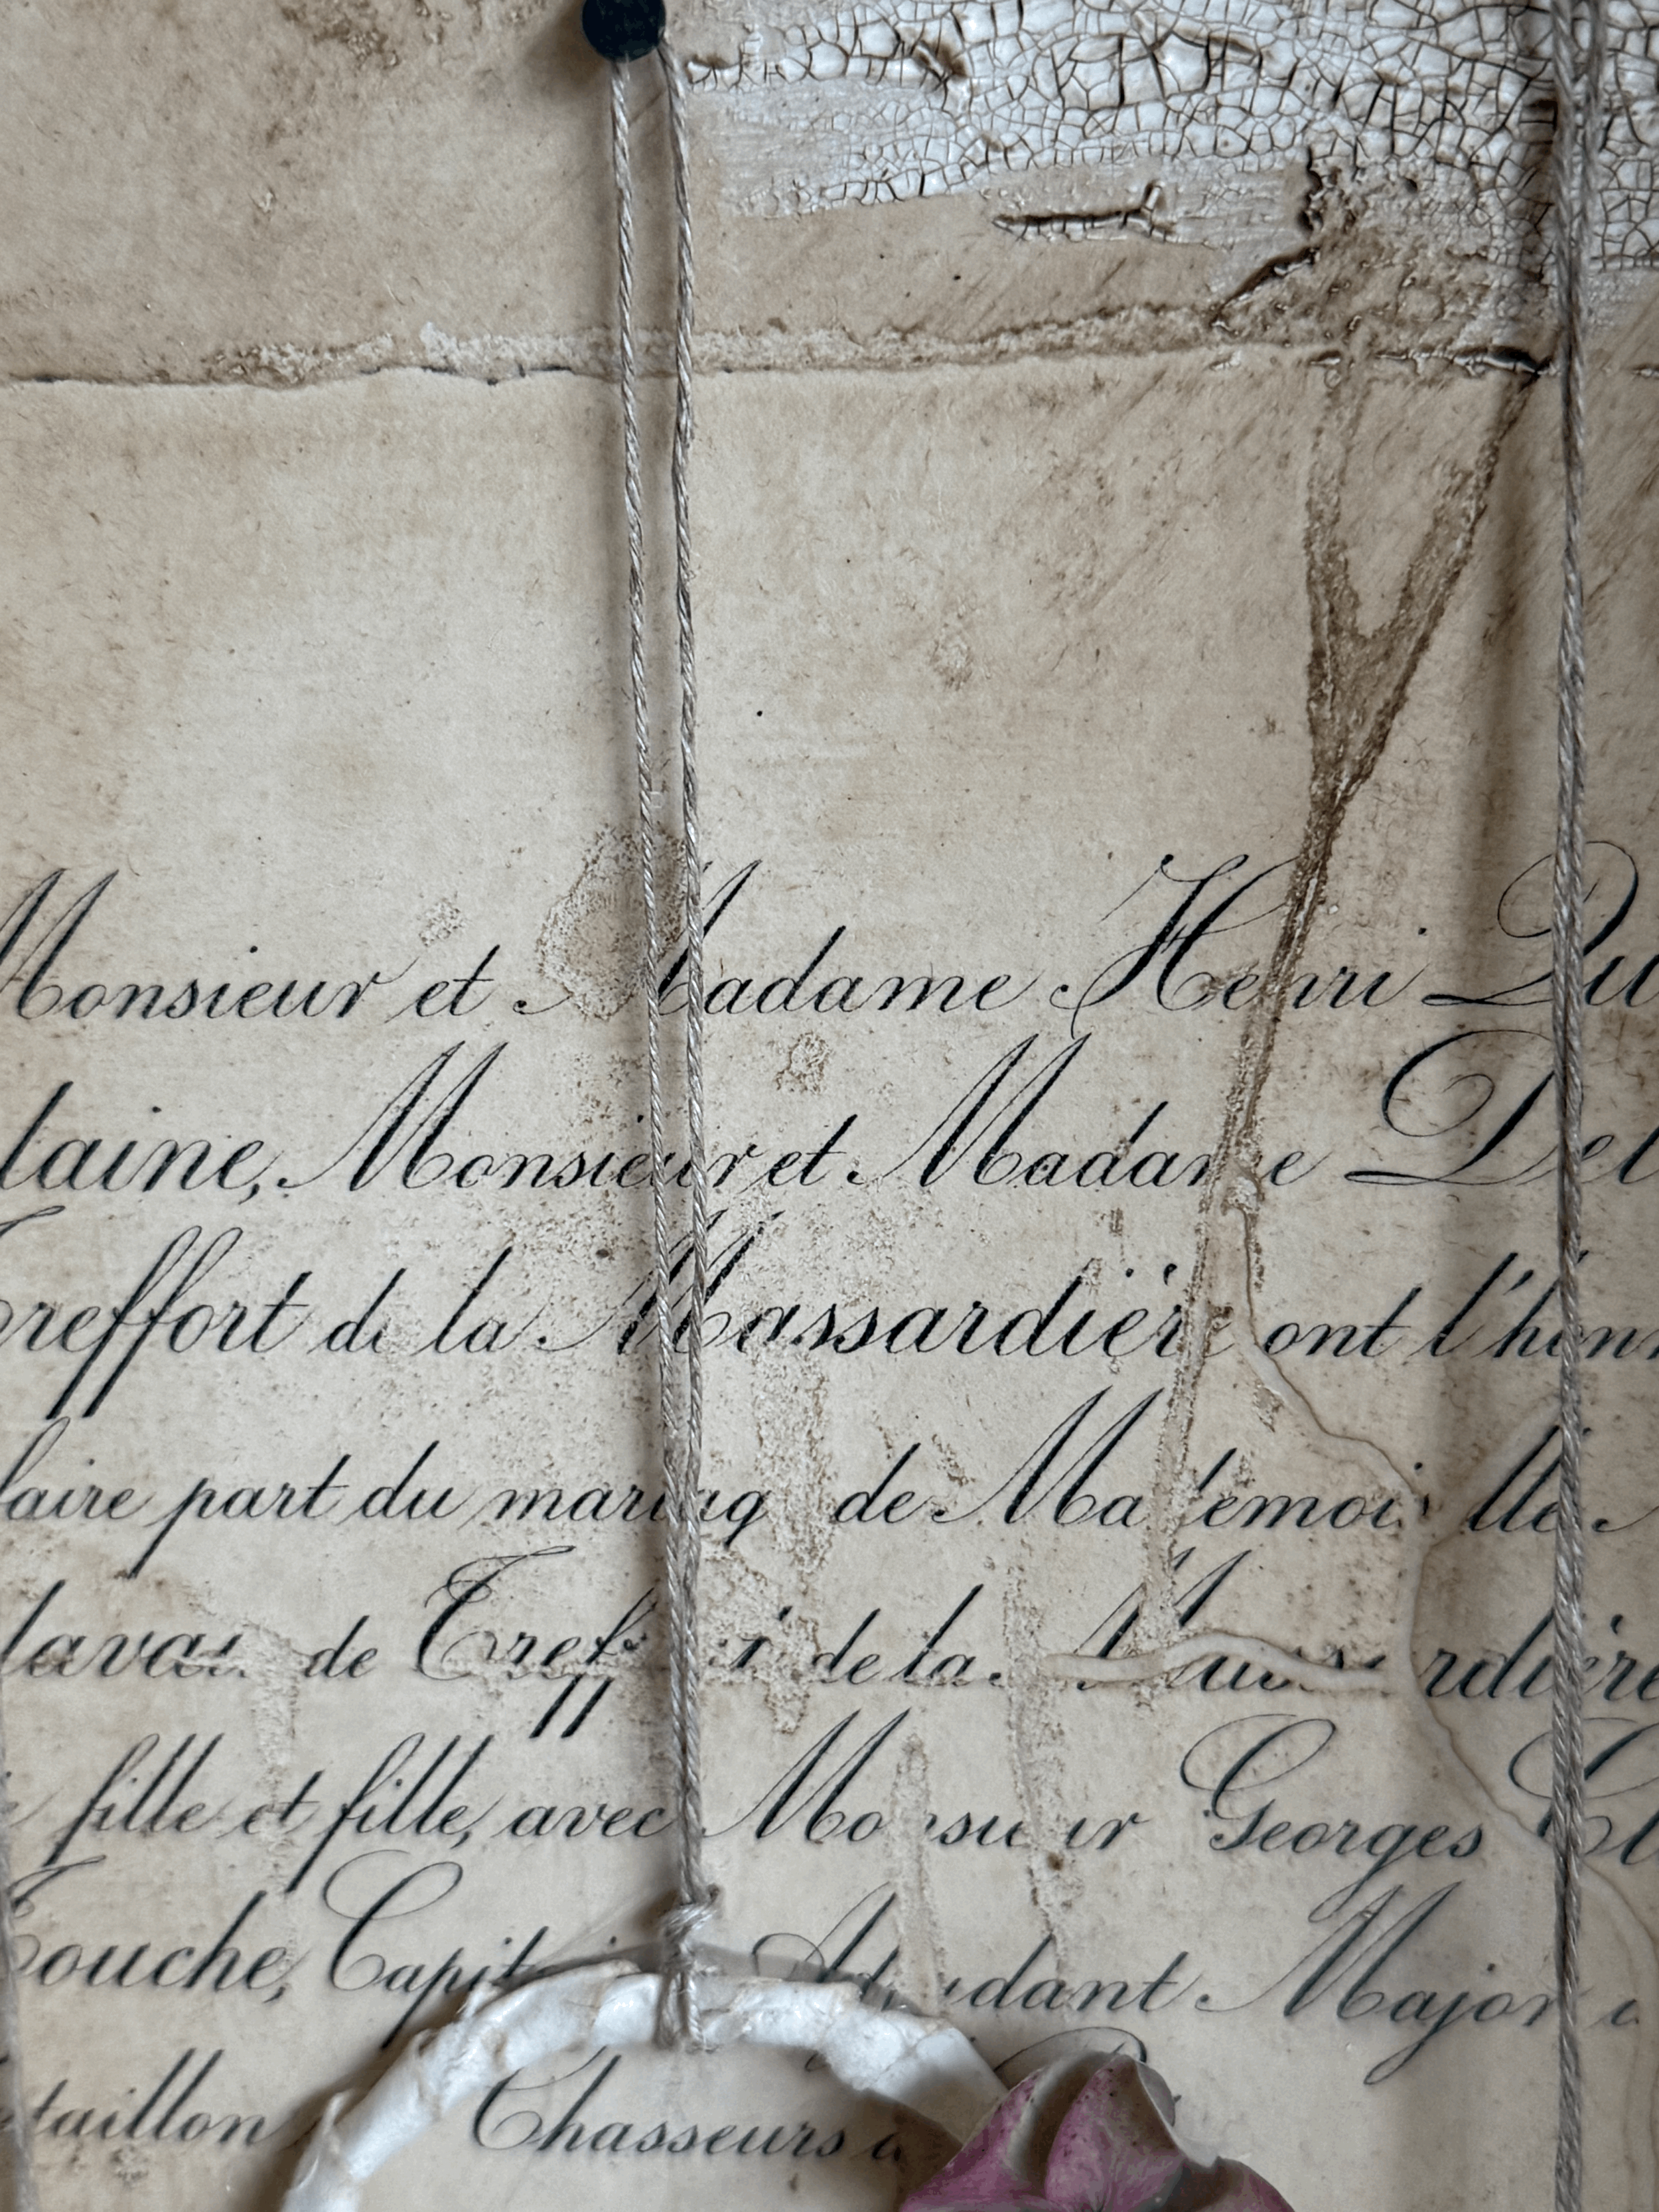 Monsieur et Madame Henri Du
laine, Monsieur et Madame Del
Treffort de la Massardière ont l'honn
faire part du mariage de Mademoiselle
de Treffort de la Massardière
fille et fille, avec Monsieur Georges
Touche, Adjudant Major
Chasseurs à